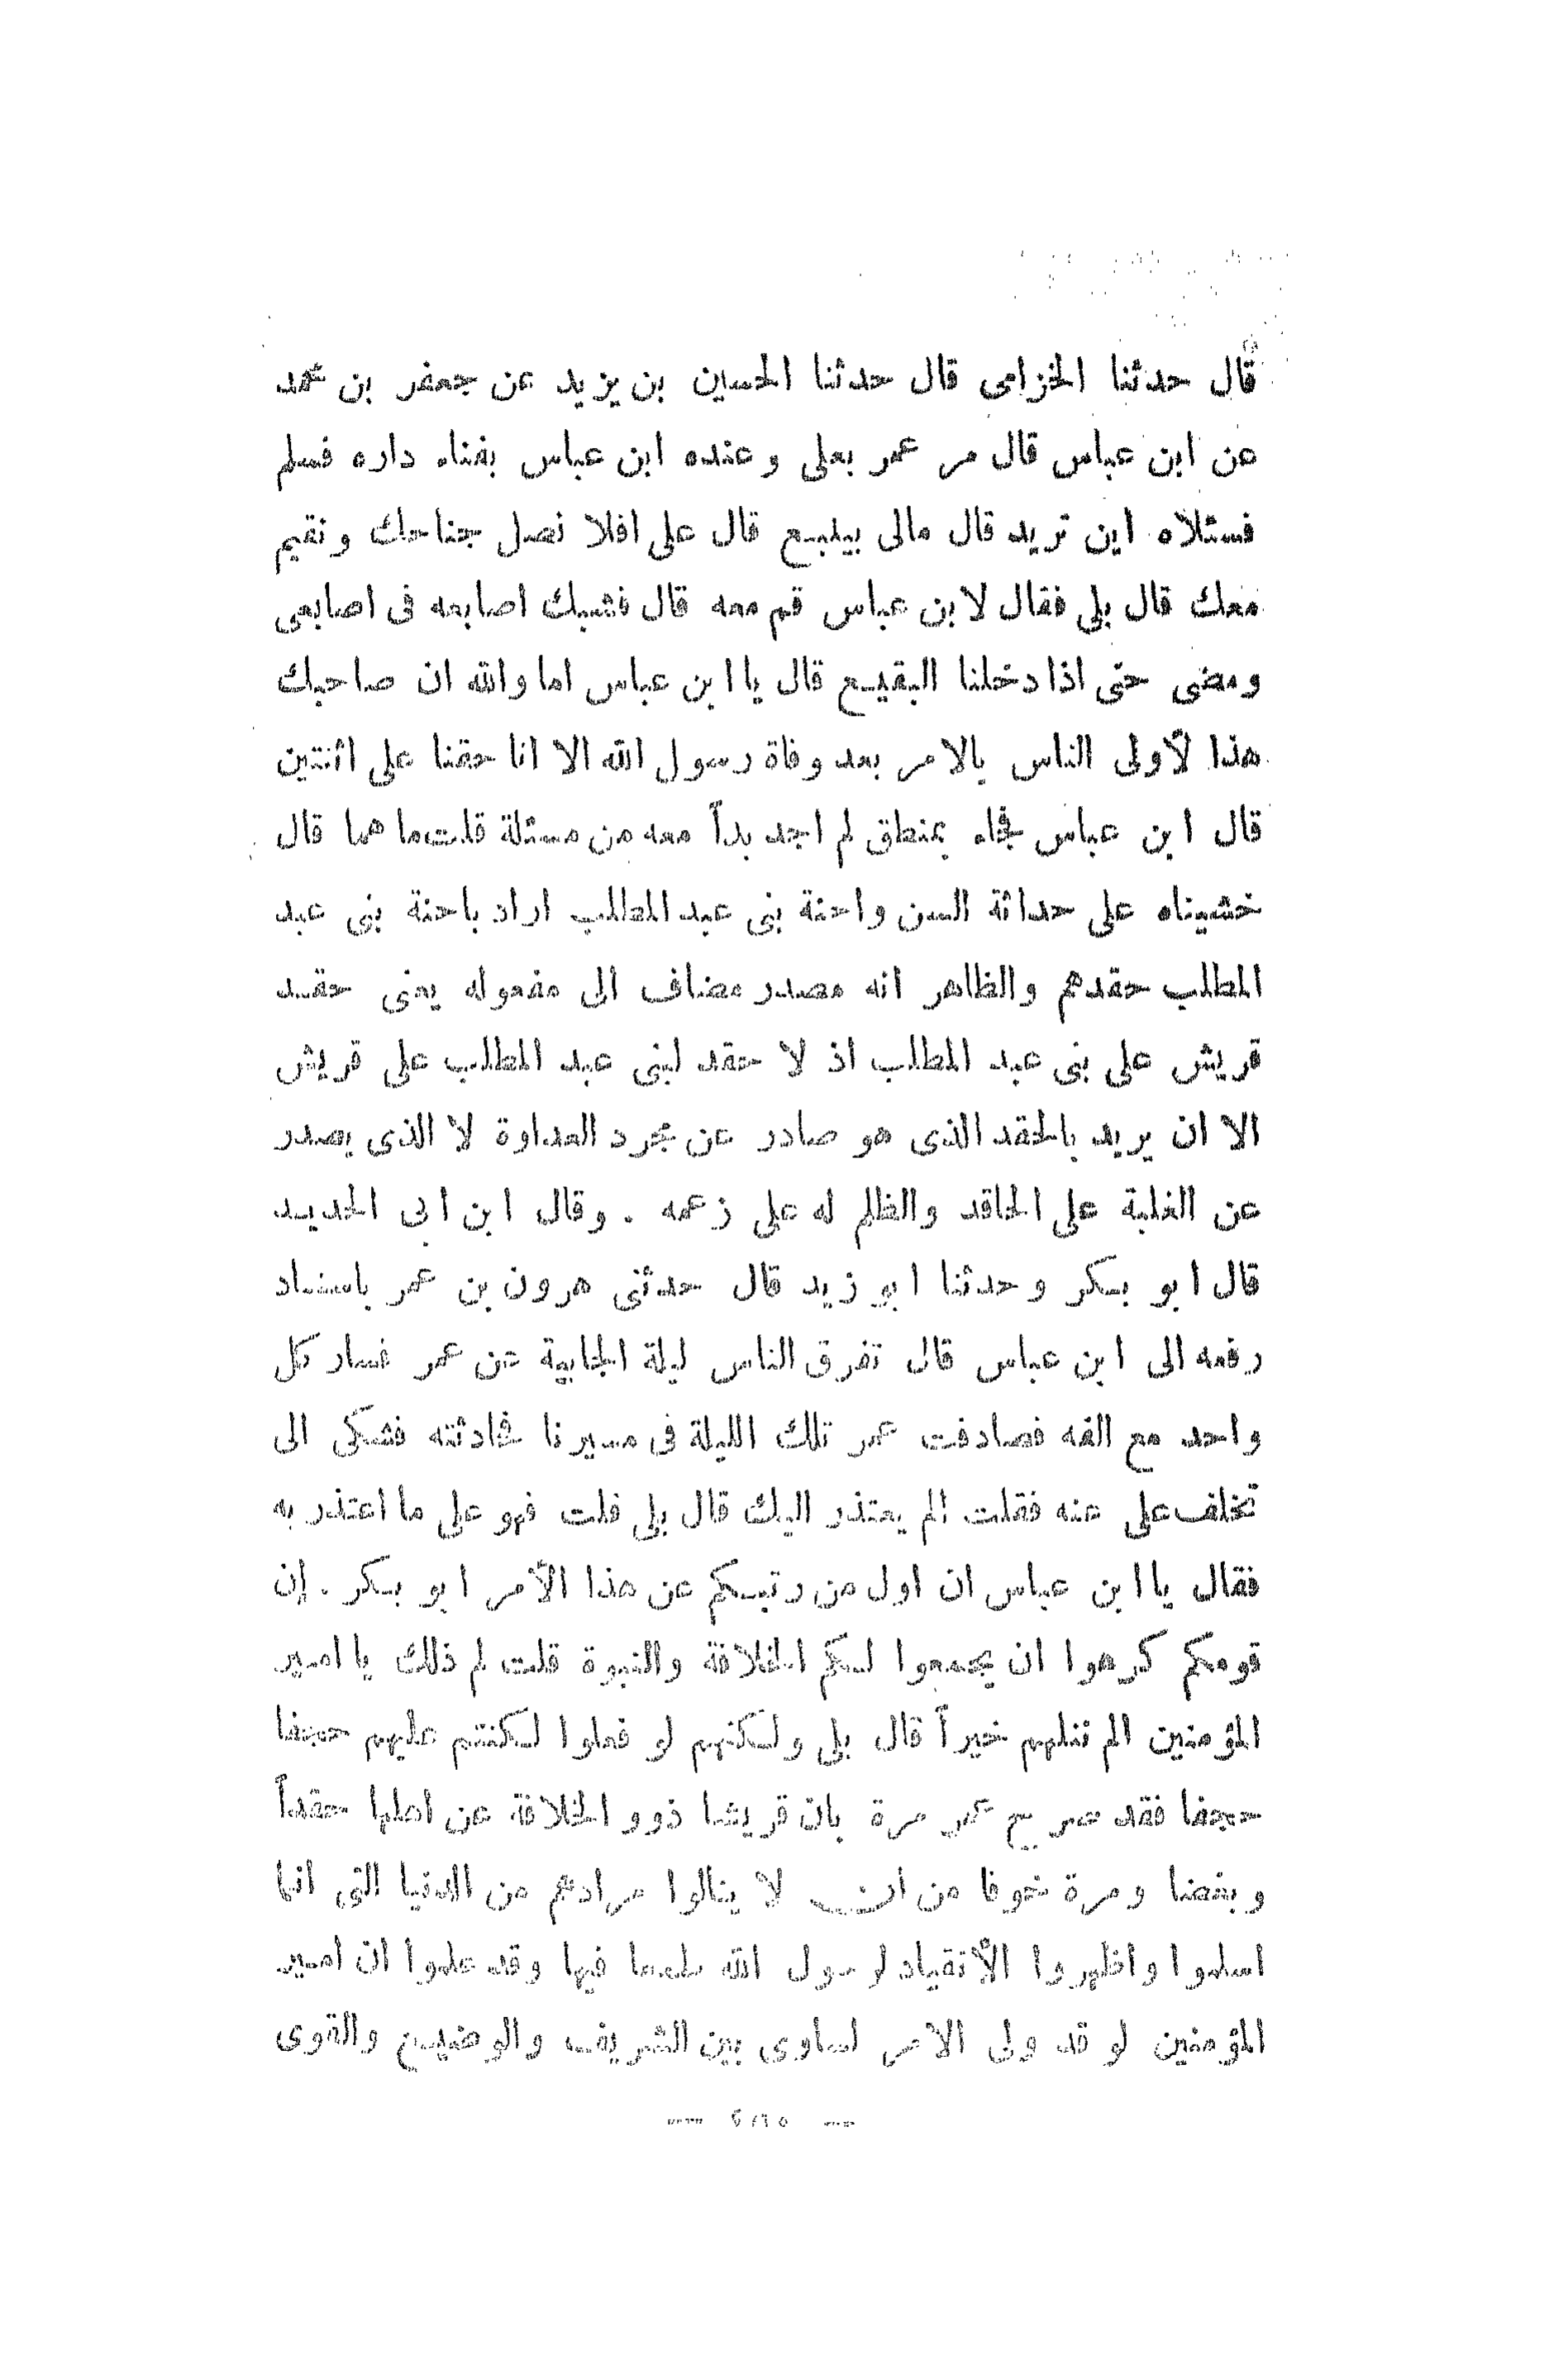 قال حدثنا الخزامى قال حدثنا الحسين بن يزيد عن جعفر بن محمد
عن ابن عباس قال مر عمر بعلى وعنده ابن عباس بفناء داره فسلم
فسئلاه اين تريد قال مالى بينبع قال على افلا نصل جناحك ونقيم
معك قال بلى فقال لابن عباس قم معه قال فشبك اصابعه فى اصابعى
ومضى حتى اذا دخلنا البقيع قال يا ابن عباس اما والله ان صاحبك
هذا لأولى الناس بالامر بعد وفاة رسول الله الا انا خفنا على اثنتين
قال ابن عباس فجاء بمنطق لم اجد بداً معه من مسئلة قلت ما هما قال
خشيناه على حداثة السن واحنة بنى عبد المطلب اراد باحنة بنى عبد
المطلب حقدهم والظاهر انه مصدر مضاف الى مفعوله يعنى حقد
قريش على بنى عبد المطلب اذ لا حقد لبنى عبد المطلب على قريش
الا ان يريد بالحقد الذى هو صادر عن مجرد العداوة لا الذى يصدر
عن الغلبة على الحاقد والظلم له على زعمه . وقال ابن ابى الحديد
قال ابو بكر وحدثنا ابو زيد قال حدثنى هرون بن عمر باسناد
رفعه الى ابن عباس قال تفرق الناس ليلة الجابية عن عمر فسار كل
واحد مع الفه فصادفت عمر تلك الليلة فى مسيرنا فحادثته فشكى الى
تخلف على عنه فقلت الم يعتذر اليك قال بلى قلت فهو على ما اعتذر به
فقال يا ابن عباس ان اول من رتبكم عن هذا الأمر ابو بكر . إن
قومكم كرهوا ان يجمعوا لكم الخلافة والنبوة قلت لم ذلك يا امير
المؤمنين الم ننلهم خيراً قال بلى ولكنهم لو فعلوا لكنتم عليهم جحفا
جحفا فقد صرح عمر مرة بان قريشا ذووا الخلافة عن اهلها حقداً
وبغضا ومرة خوفا من ان لا ينالوا مرادهم من الدنيا التى انما
اسلموا واظهروا الأنقياد لرسول الله طمعا فيها وقد علموا ان امير
المؤمنين لو قد ولى الامر لساوى بين الشريف والوضيع والقوى